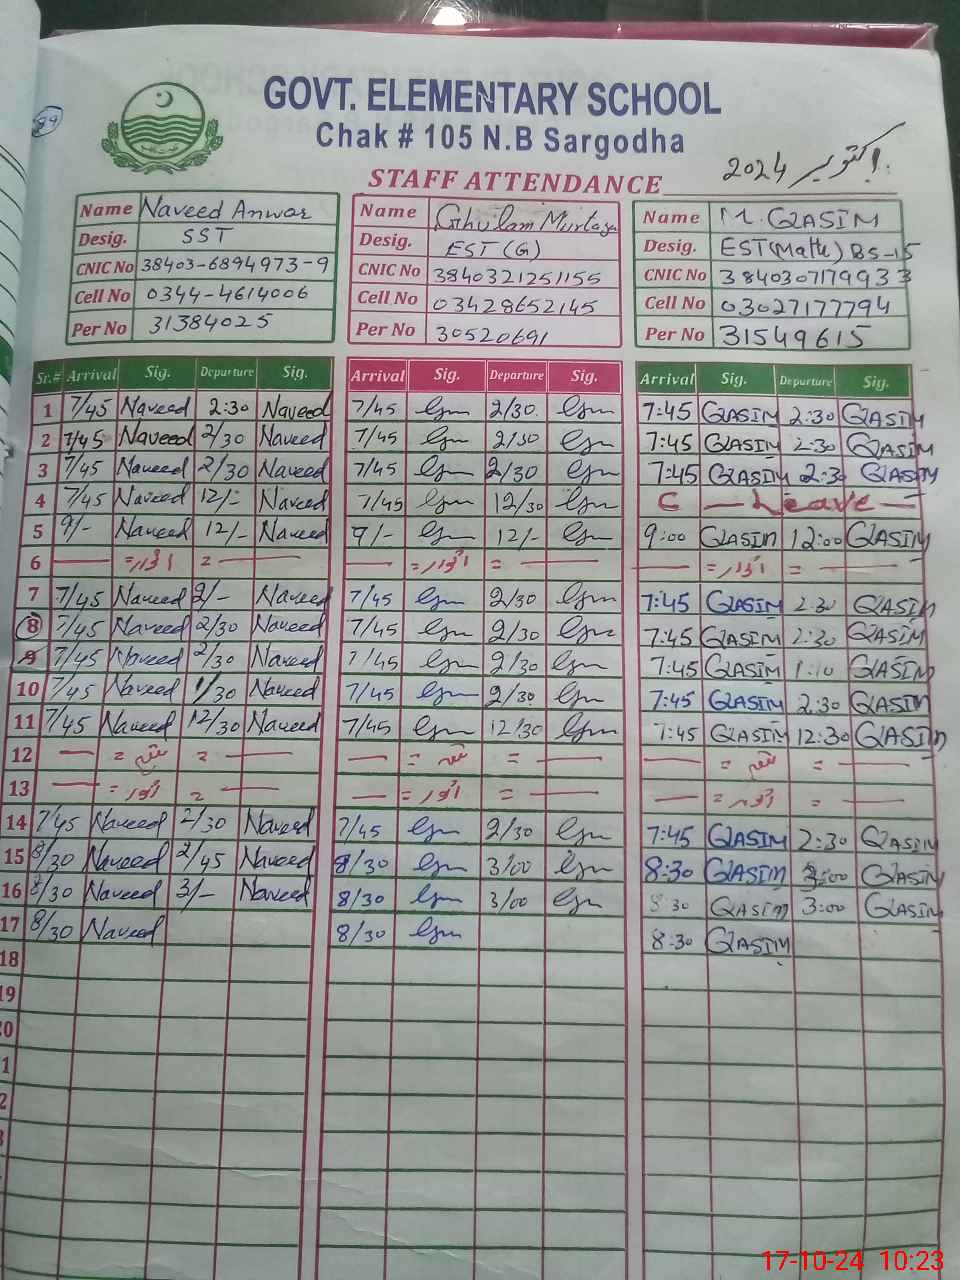 99
GOVT. ELEMENTARY SCHOOL
Chak # 105 N.B Sargodha
اکتوبر 2024
STAFF ATTENDANCE
Name Naveed Anwar
Desig. SST
CNIC No 38403-6894973-9
Cell No 0344-4614006
Per No 31384025
Name Ghulam Murtaza
Desig. EST (G)
CNIC No 3840321251155
Cell No 03428652145
Per No 30520691
Name M. QASIM
Desig. EST(Math) BS-15
CNIC No 3840307179933
Cell No 03027177794
Per No 31549615
Sr.# Arrival Sig. Departure Sig. Arrival Sig. Departure Sig. Arrival Sig. Departure Sig.
1 7/45 Naveed 2:30 Naveed 7/45 2/30. 7:45 QASIM 2:30 QASIM
2 7/45 Naveed 2/30 Naveed 7/45 2/30 7:45 QASIM 2:30 QASIM
3 7/45 Naveed 2/30 Naveed 7/45 2/30 7:45 QASIM 2:30 QASIM
4 7/45 Naveed 12/- Naveed 7/45 12/30 C — Leave —
5 9/- Naveed 12/- Naveed 9/- 12/- 9:00 QASIM 12:00 QASIM
6 — = اتوار = — — = اتوار = — — = اتوار = —
7 7/45 Naveed 2/- Naveed 7/45 2/30 7:45 QASIM 2:30 QASIM
8 7/45 Naveed 2/30 Naveed 7/45 2/30 7:45 QASIM 2:30 QASIM
9 7/45 Naveed 2/30 Naveed 7/45 2/30 7:45 QASIM 1:10 QASIM
10 7/45 Naveed 1/30 Naveed 7/45 2/30 7:45 QASIM 2:30 QASIM
11 7/45 Naveed 12/30 Naveed 7/45 12/30 7:45 QASIM 12:30 QASIM
12 — = ہفتہ = — — = ہفتہ = — — = ہفتہ = —
13 — = اتوار = — — = اتوار = — — = اتوار = —
14 7/45 Naveed 2/30 Naveed 7/45 2/30 7:45 QASIM 2:30 QASIM
15 8/30 Naveed 2/45 Naveed 8/30 3/00 8:30 QASIM 3:00 QASIM
16 8/30 Naveed 3/- Naveed 8/30 3/00 8:30 QASIM 3:00 QASIM
17 8/30 Naveed 8/30 8:30 QASIM
18
19
17-10-24 10:23